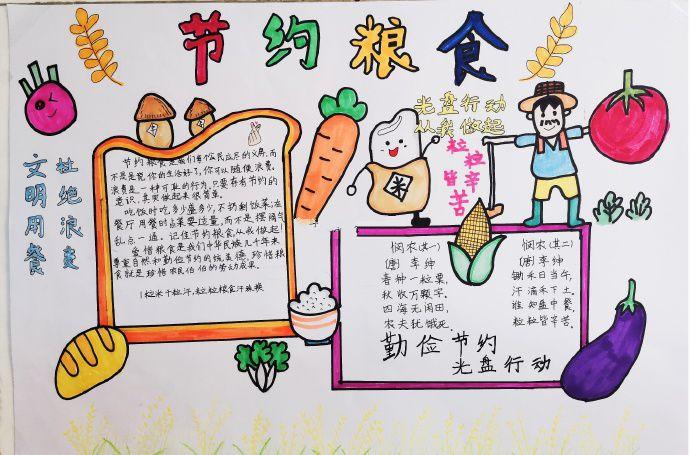 节约粮食
光盘行动
从我做起
粒粒
皆辛
苦
杜绝浪费
文明用餐
米
节约粮食是我们每个公民应尽的义务,而
不是说你的生活好了,你可以随便浪费。
浪费是一种可耻的行为。只要存有节约的
意识,其实做起来很简单。
吃饭时吃多少盛多少,不扔剩饭菜;在
餐厅用餐时点菜要适量,而不是摆阔气
乱点一通。记住节约粮食从我做起!
爱惜粮食是我们中华民族几千年来
尊重自然和勤俭节约的优良美德,珍惜粮
食就是珍惜农民伯伯的劳动成果。
1粒米千粒汗,粒粒粮食汗珠换
悯农(其一)
(唐)李绅
春种一粒粟,
秋收万颗字。
四海无闲田,
农夫犹饿死。
悯农(其二)
(唐)李绅
锄禾日当午,
汗滴禾下土。
谁知盘中餐,
粒粒皆辛苦。
勤俭节约
光盘行动